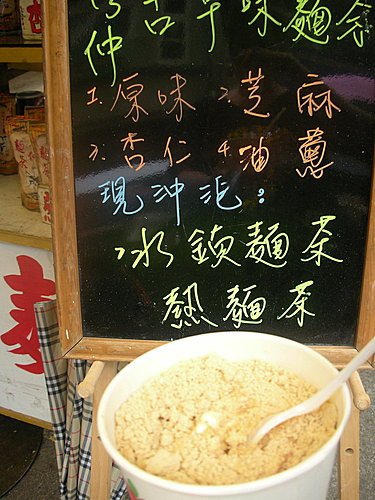 仲古早味麵茶
1.原味 2.芝麻
3.杏仁 4.油蔥
現沖泡：
冰鎮麵茶
熱麵茶